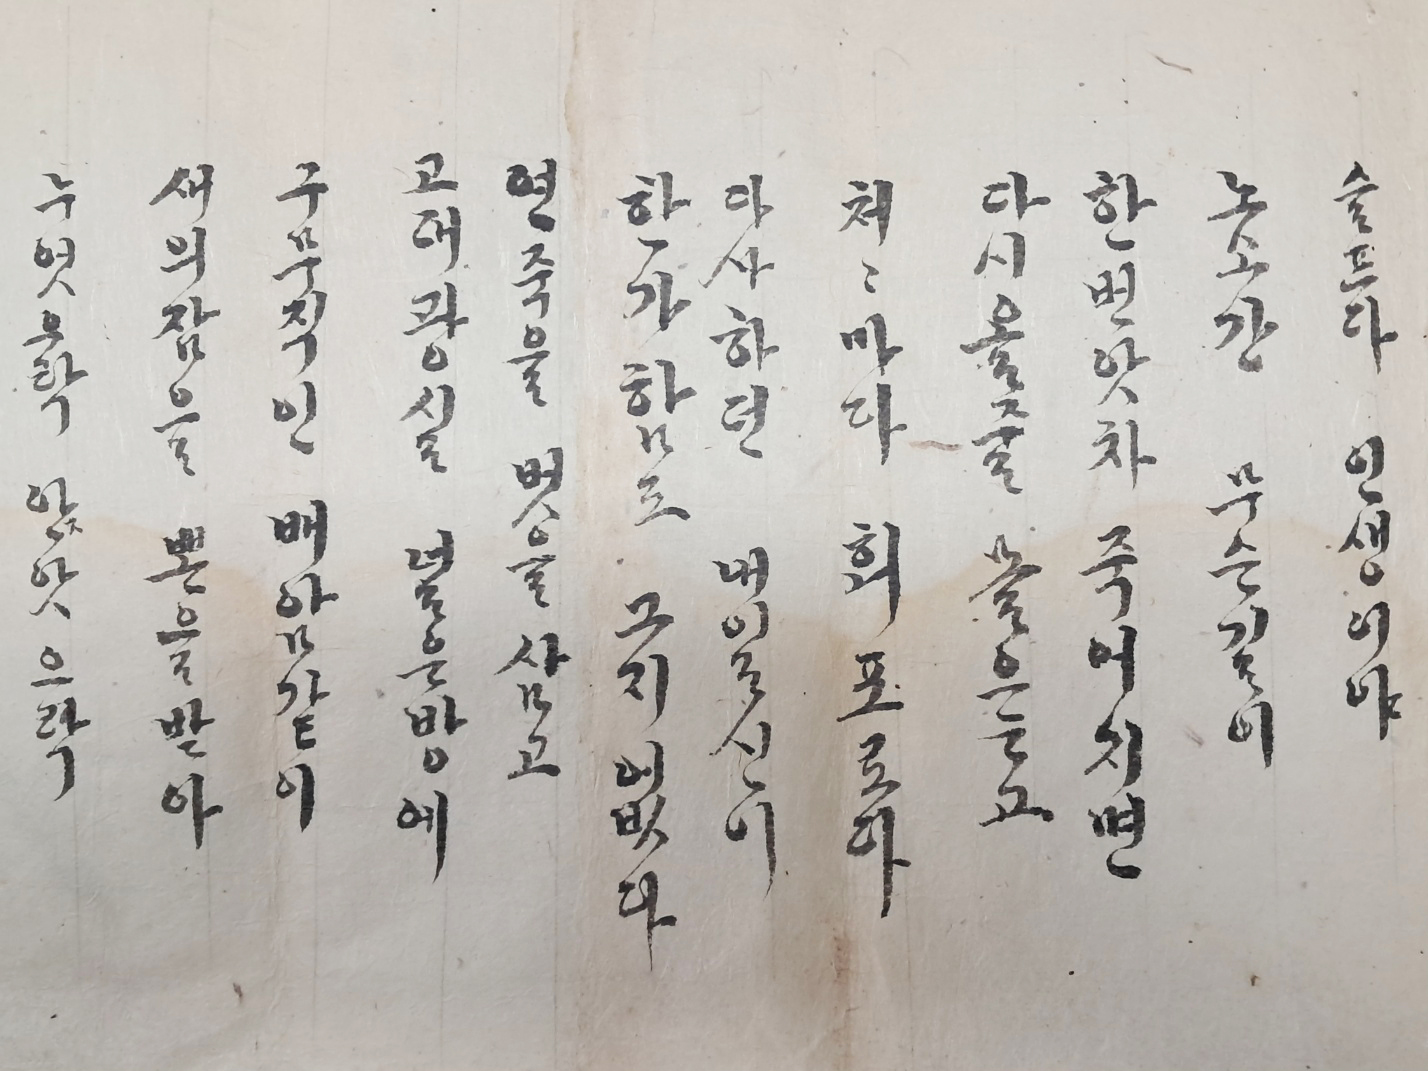 슬프다 인생이야
농소간 무슨길이
한번앗차 죽어지면
다시올줄 뭃으른고
쳐〻마다 희포로다
다사하던 내일신이
한가함도 그지업다
연죽을 벗을삼고
고대광실 널은방에
구무직인 배암갇이
새의잠을 뽄을발아
누엇으락 안앗으락